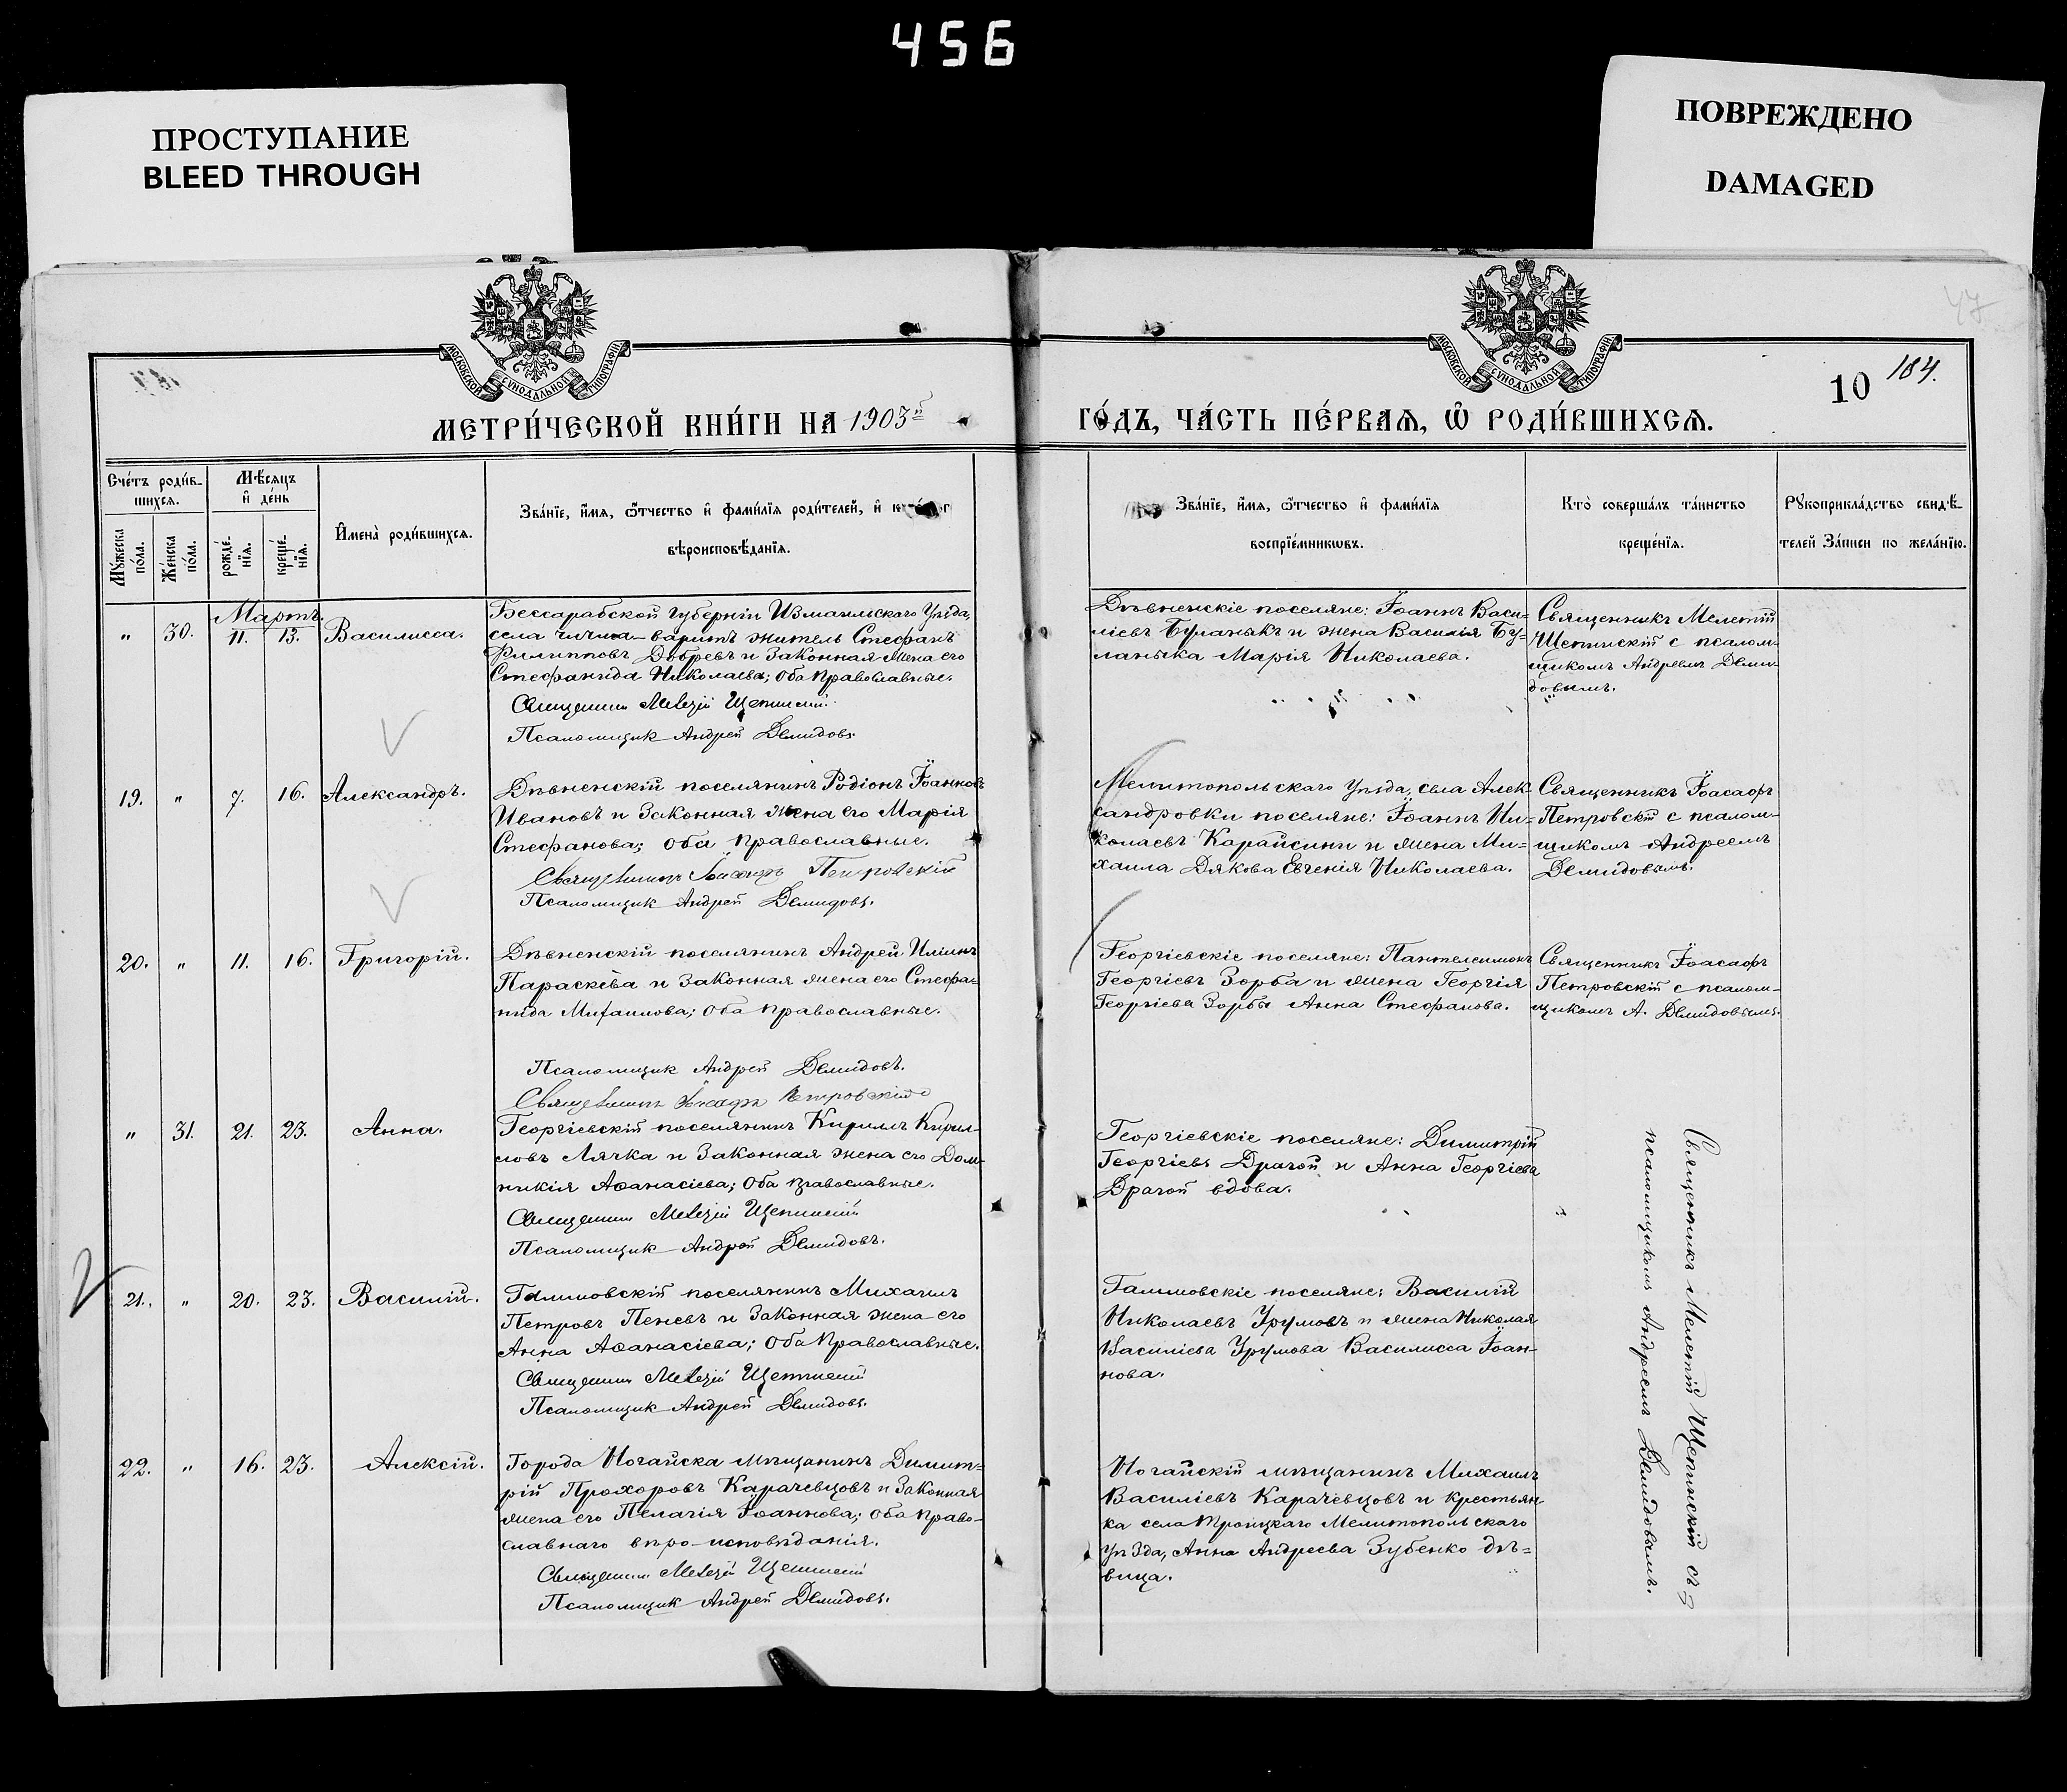 456
ПРОСТУПАНИЕ
BLEED THROUGH
ПОВРЕЖДЕНО
DAMAGED
47
МОСКОВСКОЙ СѴНОДАЛЬНОЙ ТИПОГРАФІИ
МОСКОВСКОЙ СѴНОДАЛЬНОЙ ТИПОГРАФІИ
10 184.
МЕТРИ́ЧЕСКОЙ КНИ́ГИ НА 1903й
ГО́ДЪ, ЧА́СТЬ ПЕ́РВАѦ, Ѡ҆ РОДИ́ВШИХСѦ.
Сче́тъ роди́в-
шихсѧ.
Мꙋ́жеска по́ла.
Же́нска по́ла.
Мѣ́сѧцъ
и҆ де́нь
рожде́-
нїѧ.
креще́-
нїѧ.
И҆мена̀ роди́вшихсѧ.
Зва́нїе, и҆́мѧ, ѻ҆́тчество и҆ фами́лїѧ роди́телей, и҆
вѣроисповѣ́данїѧ.
Зва́нїе, и҆́мѧ, ѻ҆́тчество и҆ фами́лїѧ
воспрїе́мникѡвъ.
Кто̀ соверша́лъ та́инство
креще́нїѧ.
Рꙋкоприкла́дство свидѣ́-
телей За́писи по жела́нїю.
Мартъ
" 30. 11. 13. Василисса.
Бессарабской губерніи Измаильскаго Уѣзда,
села чичма-варитъ житель Стефанъ
Филипповъ Добревъ и Законная жена его
Стефанида Николаева; оба православные.
Священникъ Мелетій Щепинский
Псаломщик Андрей Демидовъ
Дѣвненскіе поселяне: Іоаннъ Васи-
ліевъ Буланыкъ и жена Василія Бу-
ланыка Марія Николаева.
Священникъ Мелетій
Щепинскій с псалом-
щикомъ Андреемъ Деми-
довымъ.
19. " 7. 16. Александръ.
Дѣвненскій поселянинъ Родіонъ Іоанновъ
Ивановъ и Законная жена его Марія
Стефанова; оба православные.
Священникъ Іоасафъ Петровскій
Псаломщик Андрей Демидовъ.
Мелитопольскаго Уѣзда, села Алек
сандровки поселяне: Іоаннъ Ни-
колаевъ Карайсини и жена Ми-
хаила Дякова Евгенія Николаева.
Священникъ Іоасафъ
Петровскій с псалом-
щикомъ Андреемъ
Демидовымъ.
20. " 11. 16. Григорій.
Дѣвненскій поселянинъ Андрей Иліинъ
Параскева и Законная жена его Стефа-
нида Михаилова; оба православные.
Псаломщик Андрей Демидовъ.
Священникъ Іоасафъ Петровскій
Георгіевскіе поселяне: Пантелеимонъ
Георгіевъ Зорба и жена Георгія
Георгіева Зорбы Анна Стефанова.
Священникъ Іоасафъ
Петровскій с псалом-
щикомъ А. Демидовымъ.
" 31. 21. 23. Анна.
Георгіевскій поселянинъ Кириллъ Кирил-
ловъ Лячка и Законная жена его Дом-
никія Аѳанасіева; оба православные.
Священникъ Мелетій Щепинский
Псаломщик Андрей Демидовъ.
Георгіевскіе поселяне: Димитрій
Георгіевъ Драгой и Анна Георгіева
Драгой вдова.
Священникъ Мелетій Щепинскій съ
псаломщикомъ Андреемъ Демидовымъ.
21. " 20. 23. Василій.
Гамовскій поселянинъ Михаилъ
Петровъ Пеневъ и Законная жена его
Анна Аѳанасіева; оба православные.
Священникъ Мелетій Щепинский
Псаломщик Андрей Демидовъ.
Гамовскіе поселяне: Василій
Николаевъ Урумовъ и жена Николая
Василіева Урумова Василисса Іоан-
нова.
22. " 16. 23. Алексій.
Города Ногайска мѣщанинъ Димит-
рій Прохоровъ Карачевцовъ и Законная
жена его Пелагія Іоаннова; оба право-
славнаго вѣро-исповѣданія.
Священникъ Мелетій Щепинский
Псаломщик Андрей Демидовъ.
Ногайскій мѣщанинъ Михаилъ
Василіевъ Карачевцовъ и крестьян-
ка села Троицкаго Мелитопольскаго
уѣзда, Анна Андреева Зубенко дѣ-
вица.